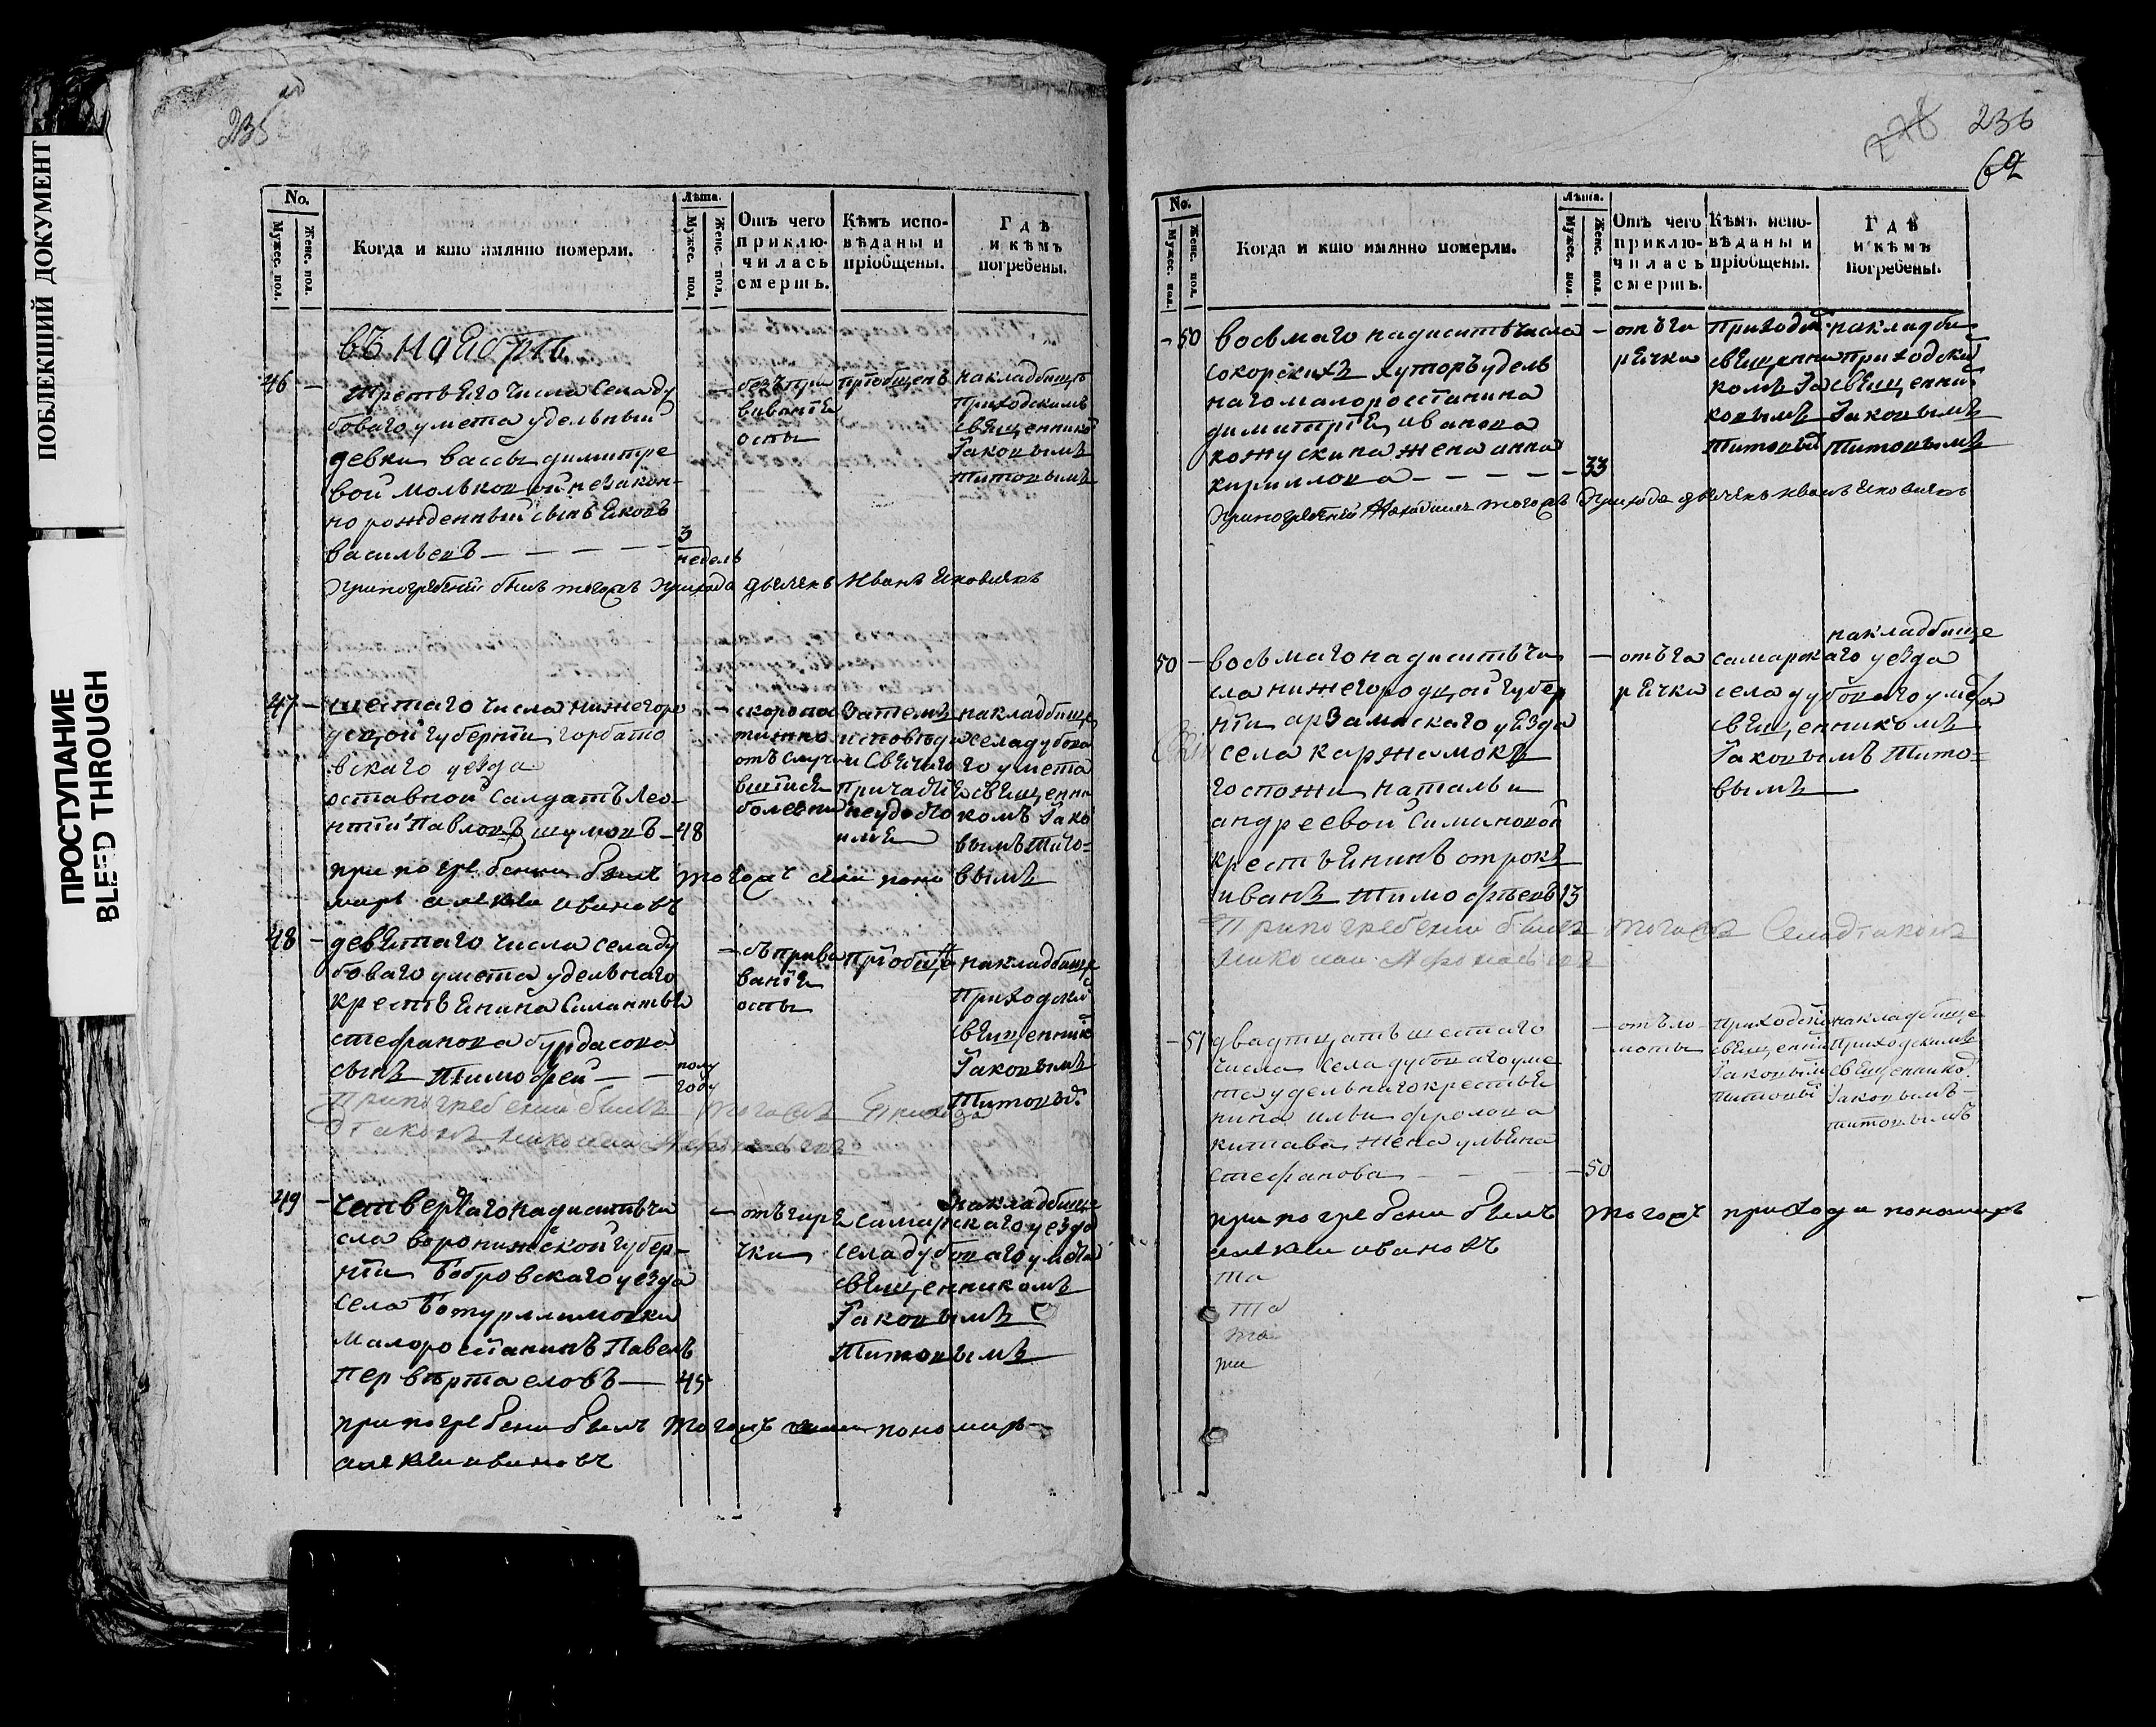 ПОБЛЕКШИЙ ДОКУМЕНТ
ПРОСТУПАНИЕ
BLEED THROUGH
235
No.
Мужес. пол.
Женс. пол.
Когда и кто имянно померли.
Лѣта.
Мужес. пол.
Женс. пол.
Отъ чего приклю-
чилась смерть.
Кѣмъ испо-
вѣданы и
пріобщены.
Гдѣ
и кѣмъ
погребены.
въ ноябрѣ
46 — третьяго числа села ду
боваго умета удельный
девки вассы димитре
вой мольковой незакон-
но рожденный сынъ Яковъ
васильевъ — — — — — 3
недель
безъ при
виванія
оспы
пріобщенъ
на кладбище
приходскимъ
священнико
Іаковымъ
Титовымъ
при погребеніи былъ тогожъ прихода дьячекъ Иванъ Яковлевъ
47 — шестаго числа нижегоро
уской губерніи горбато
вскаго уезда
оставной салдатъ Лео-
нтій Павловъ шумовъ — 48
— скоропо
тижно
отъ случи
вшійся
болезни
затемъ
исповѣди
и Свѣтаго
причастія
неудосто
илъся
на кладбище
села дубова
го умета
священни
комъ Іако
вымъ Тито-
вымъ
при погребени былъ тогожъ села поно
марь алекѣи ивановъ
48 — девятаго числа села ду
боваго умета удельнаго
крестьянина Силантья
стефанова бурдасова
сынъ Тимофей — — полу
году
— съприви
ванія
оспы
пріобще
на кладбище
приходски
священник
Іаковымъ
Титовы
При погребеніи былъ тогожъ прихода
діаконъ николаи Афонасьевъ
49 — четвертаго надцать чи
сла воронижской губер-
ніи бобровскаго уезда
селаБотурлимовки
малоросіянинъ Павелъ
Первѣртаеловъ — 45
— отъ горя
чки
на кладбище
самарскаго уезда
села дубоваго умета
священникомъ
Іаковымъ
Титовымъ
при погребени былъ тогожъ села пономарь
алекѣи ивановъ
236
62
No.
Мужес. пол.
Женс. пол.
Когда и кто имянно померли.
Лѣта.
Мужес. пол.
Женс. пол.
Отъ чего
приклю-
чилась
смерть.
Кѣмъ испо-
вѣданы и
пріобщены.
Гдѣ
и кѣмъ
погребены.
— 50 восьмаго надцать числа
сокорскихъ хуторъ удель
наго малоросіянина
димитрія иванова
кожускина жена анна
кирилова — — — — 33
— отъ го
рячки
приходски
священни
комъ Іа
ковымъ
Титовы
на кладби
приходски
священни
Іаковымъ
Титовымъ
при погребеніи находился тогожъ прихода дьячекъ Иванъ Яковлевъ
50 — восьмаго надцать чи
сла нижегородцкой губер
ніи арзамаскаго уезда
села каржамокъ
госпожи натальи
андреевой Симиновой
крестьянинъ отрокъ
иванъ Тимофѣевъ 13
— отъ го
рячки
на кладбище
самарскаго уезда
села дубоваго умета
священникомъ
Іаковымъ Тито-
вымъ
При погребении былъ тогожъ Села діаконъ
николаи Афонасьевъ
— 51 двадцать шестаго
числа села дубоваго уме
та удельнаго крестья
нина ильи фролова
китава жена ульяна
стефанова — — — 50
— отъ ло
моты
приходски
священни
Іаковым
титовы
на кладбище
приходскимъ
священнико
Іаковымъ
титовымъ
при погребени былъ тогожъ прихода пономарь
алекѣи ивановъ
та
та
та
ти